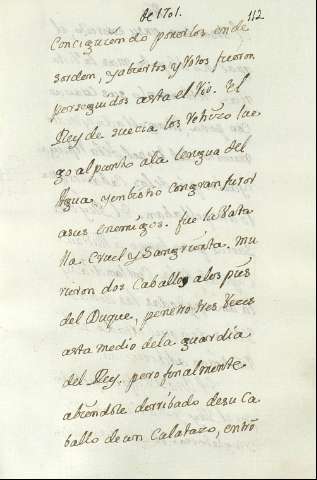 de 1701.
112
Conciguiendo ponerlos en de
sorden, y abiertos y Rotos fueron
perseguidos asta el Rio. el
Rey de suecia los Rehizo lue
go al punto a la lengua del
Agua, y enbistio con gran furor
a sus enemigos. fue la Vata
lla Cruel y Sangrienta. Mu
rieron dos Caballos a los pies
del Duque, penetro tres Veces
asta medio de la guardia
del Rey. pero finalmente
abiendole derribado de su Ca
ballo de un Calatazo, entrò